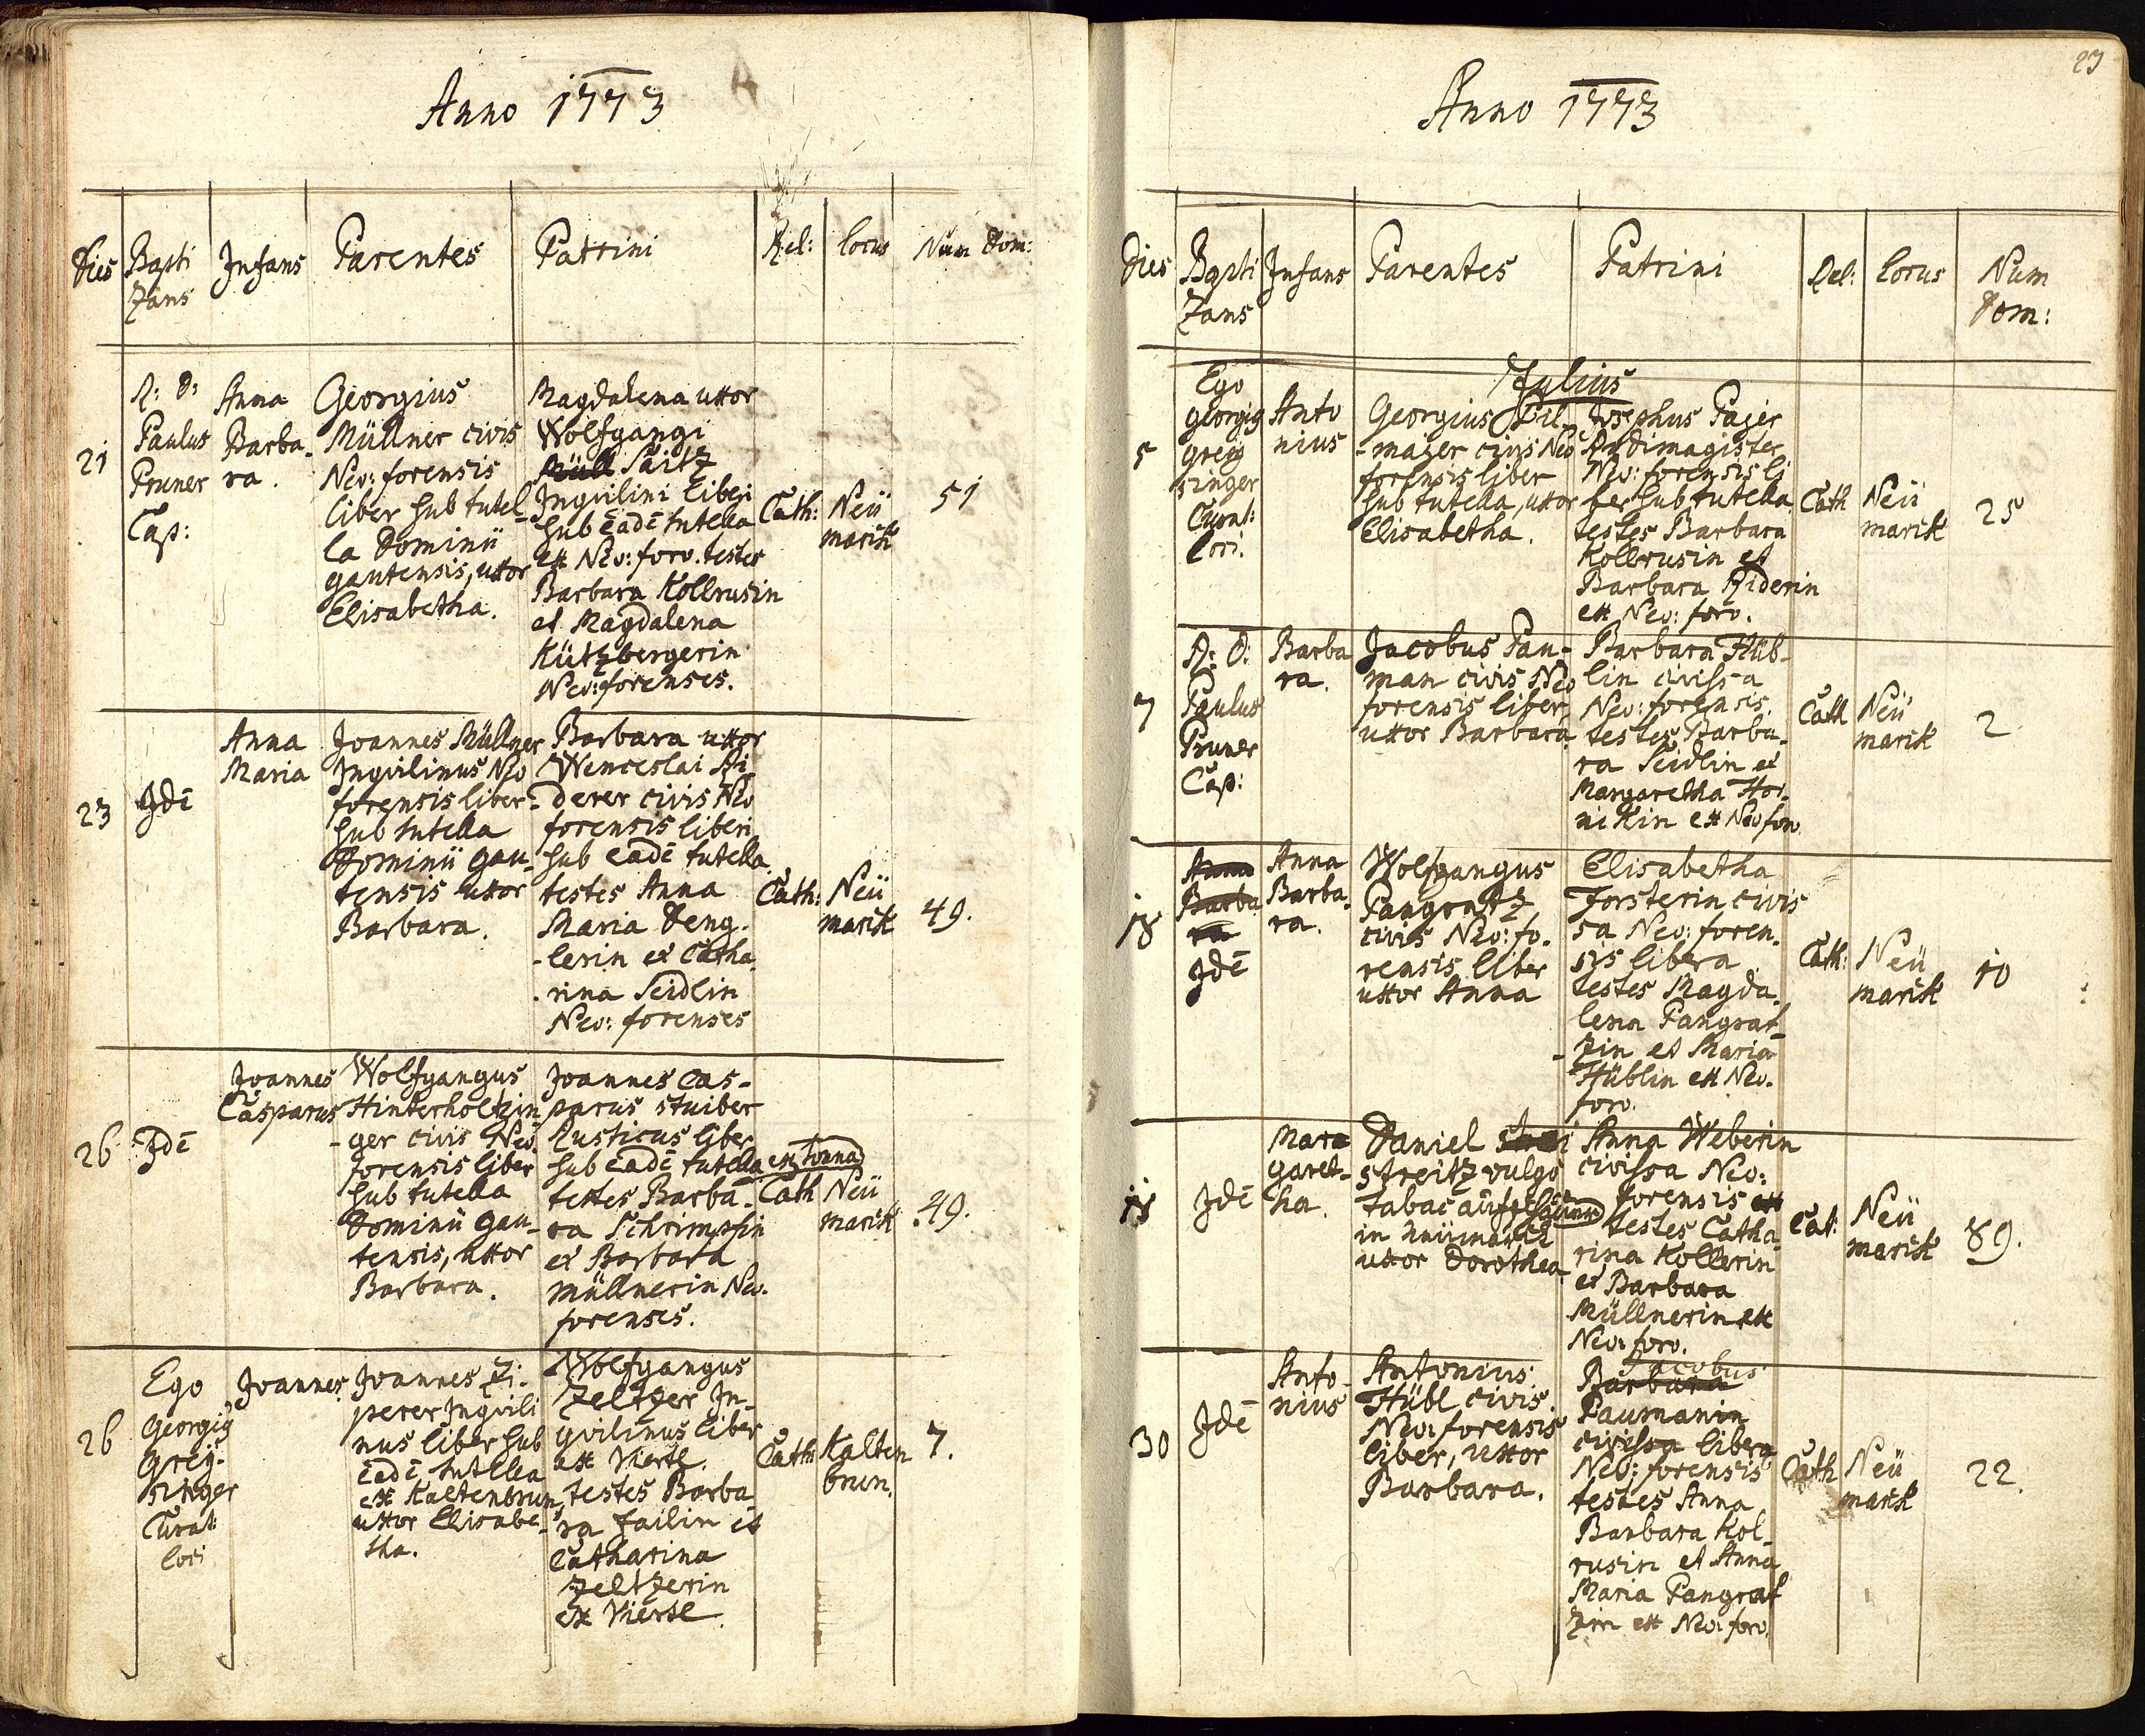 Anno 1773
Dies
Bapti
zans
Infans
Parentes
Patrini
Rel:
locus
Num Dom:
21
R: D:
Paulus
Pruner
Cap:
Anna
Barba-
ra.
Georgius
Müllner civis
Neo: forensis
liber sub tutel-
la Dominii
gautensis, uxor
Elisabetha.
Magdalena uxor
Wolfgangi
Müll Saitz
Inquilini liberi
sub eadē tutella
ex Neo: foro. testes
Barbara Kollrusin
et Magdalena
Kützbergerin
Neo: forenses.
Cath:
Neü
markt
51
23
Idē
Anna
Maria
Joannes Müllner
Inquilinus Neo
forensis liber
sub tutella
Dominii gau-
tensis uxor
Barbara.
Barbara uxor
Wenceslai Ri-
derer civis Neo
forensis liberi
sub eadē tutella
testes Anna
Maria Deng-
lerin et Catha
rina Seidlin
Neo: forenses
Cath:
Neü
markt
49.
26
Idē
Joannes
Casparus
Wolfgangus
Hinterholtzin-
ger civis Neo
forensis liber
sub tutella
Dominii gau-
tensis, uxor
Barbara.
Joannes Cas-
parus stuiber
Rusticus liber
sub eadē tutella ex Tonna
testes Barba-
ra Schrimpfin
et Barbara
müllnerin Neo.
forenses.
Cath
Neü
markt
49.
26
Ego
Georgig
Greÿ-
singer
Curat
loci
Joannes
Joannes Zi-
perer Inquili
nus liber sub
eadē tutella
ex Kaltenbrun
uxor Elisabe-
tha.
Wolfgangus
Zeltzer In-
quilinus liber
ex Vierte.
testes Barba
ra failin et
Catharina
Zeltzerin
ex Vierte
Cath
Kalten
brun.
7.
23
Anno 1773
Dies
Bapti
zans
Infans
Parentes
Patrini
Rel:
locus
Num
Dom:
Julius
5
Ego
georgig
greÿ
singer
Curat:
loci.
Anto
nius
Georgius Pil-
majer civis Neo
forensis liber
sub tutella, uxor
Elisabetha.
Josephus Pajer
Ludimagister
Neo: forensis li
ber sub tutella
testes Barbara
Kollrusin et
Barbara Riderin
ex Neo: foro.
Cath
Neü
markt
25
7
R: D:
Paulus
Pruner
Cap:
Barba
ra.
Jacobus Pau-
man civis Neo
forensis liber,
uxor Barbara
Barbara Hüb-
lin civissa
Neo: forensis.
testes Barba-
ra Seidlin et
Margaretha Hor-
nikin ex Neo foro
Cath
Neü
markt
2
18
Anna
Barba
ra
Idē
Anna
Barba-
ra.
Wolfgangus
Pangratz
civis Neo: fo-
rensis liber
uxor Anna
Elisabetha
Forsterin civis
sa Neo: foren-
sis libera
testes Magda
lena Pangrat-
zin et Maria
Hüblin ex Neo.
foro.
Cath:
Neü
markt
10
18
Idē
Mara
garet-
ha.
Daniel
streitz vulgo
tabac
in neümarkt
uxor Dorothea
Anna Weberin
civissa Neo:
forensis ex
testes Catha
rina Kollerin
et Barbara
Müllnerin ex
Neo: foro.
Cat:
Neü
markt
89.
30
Idē
Anto-
nius
Antonius
Hübl civis
Neo: forensis
liber, uxor
Barbara.
Jacobus
Barbara
Paumanin
civissa libera
Neo: forensis
testes Anna
Barbara Kol-
rusin et Anna
Maria Pangrat
zin ex Neo: foro.
Cath
Neü
markt
22.